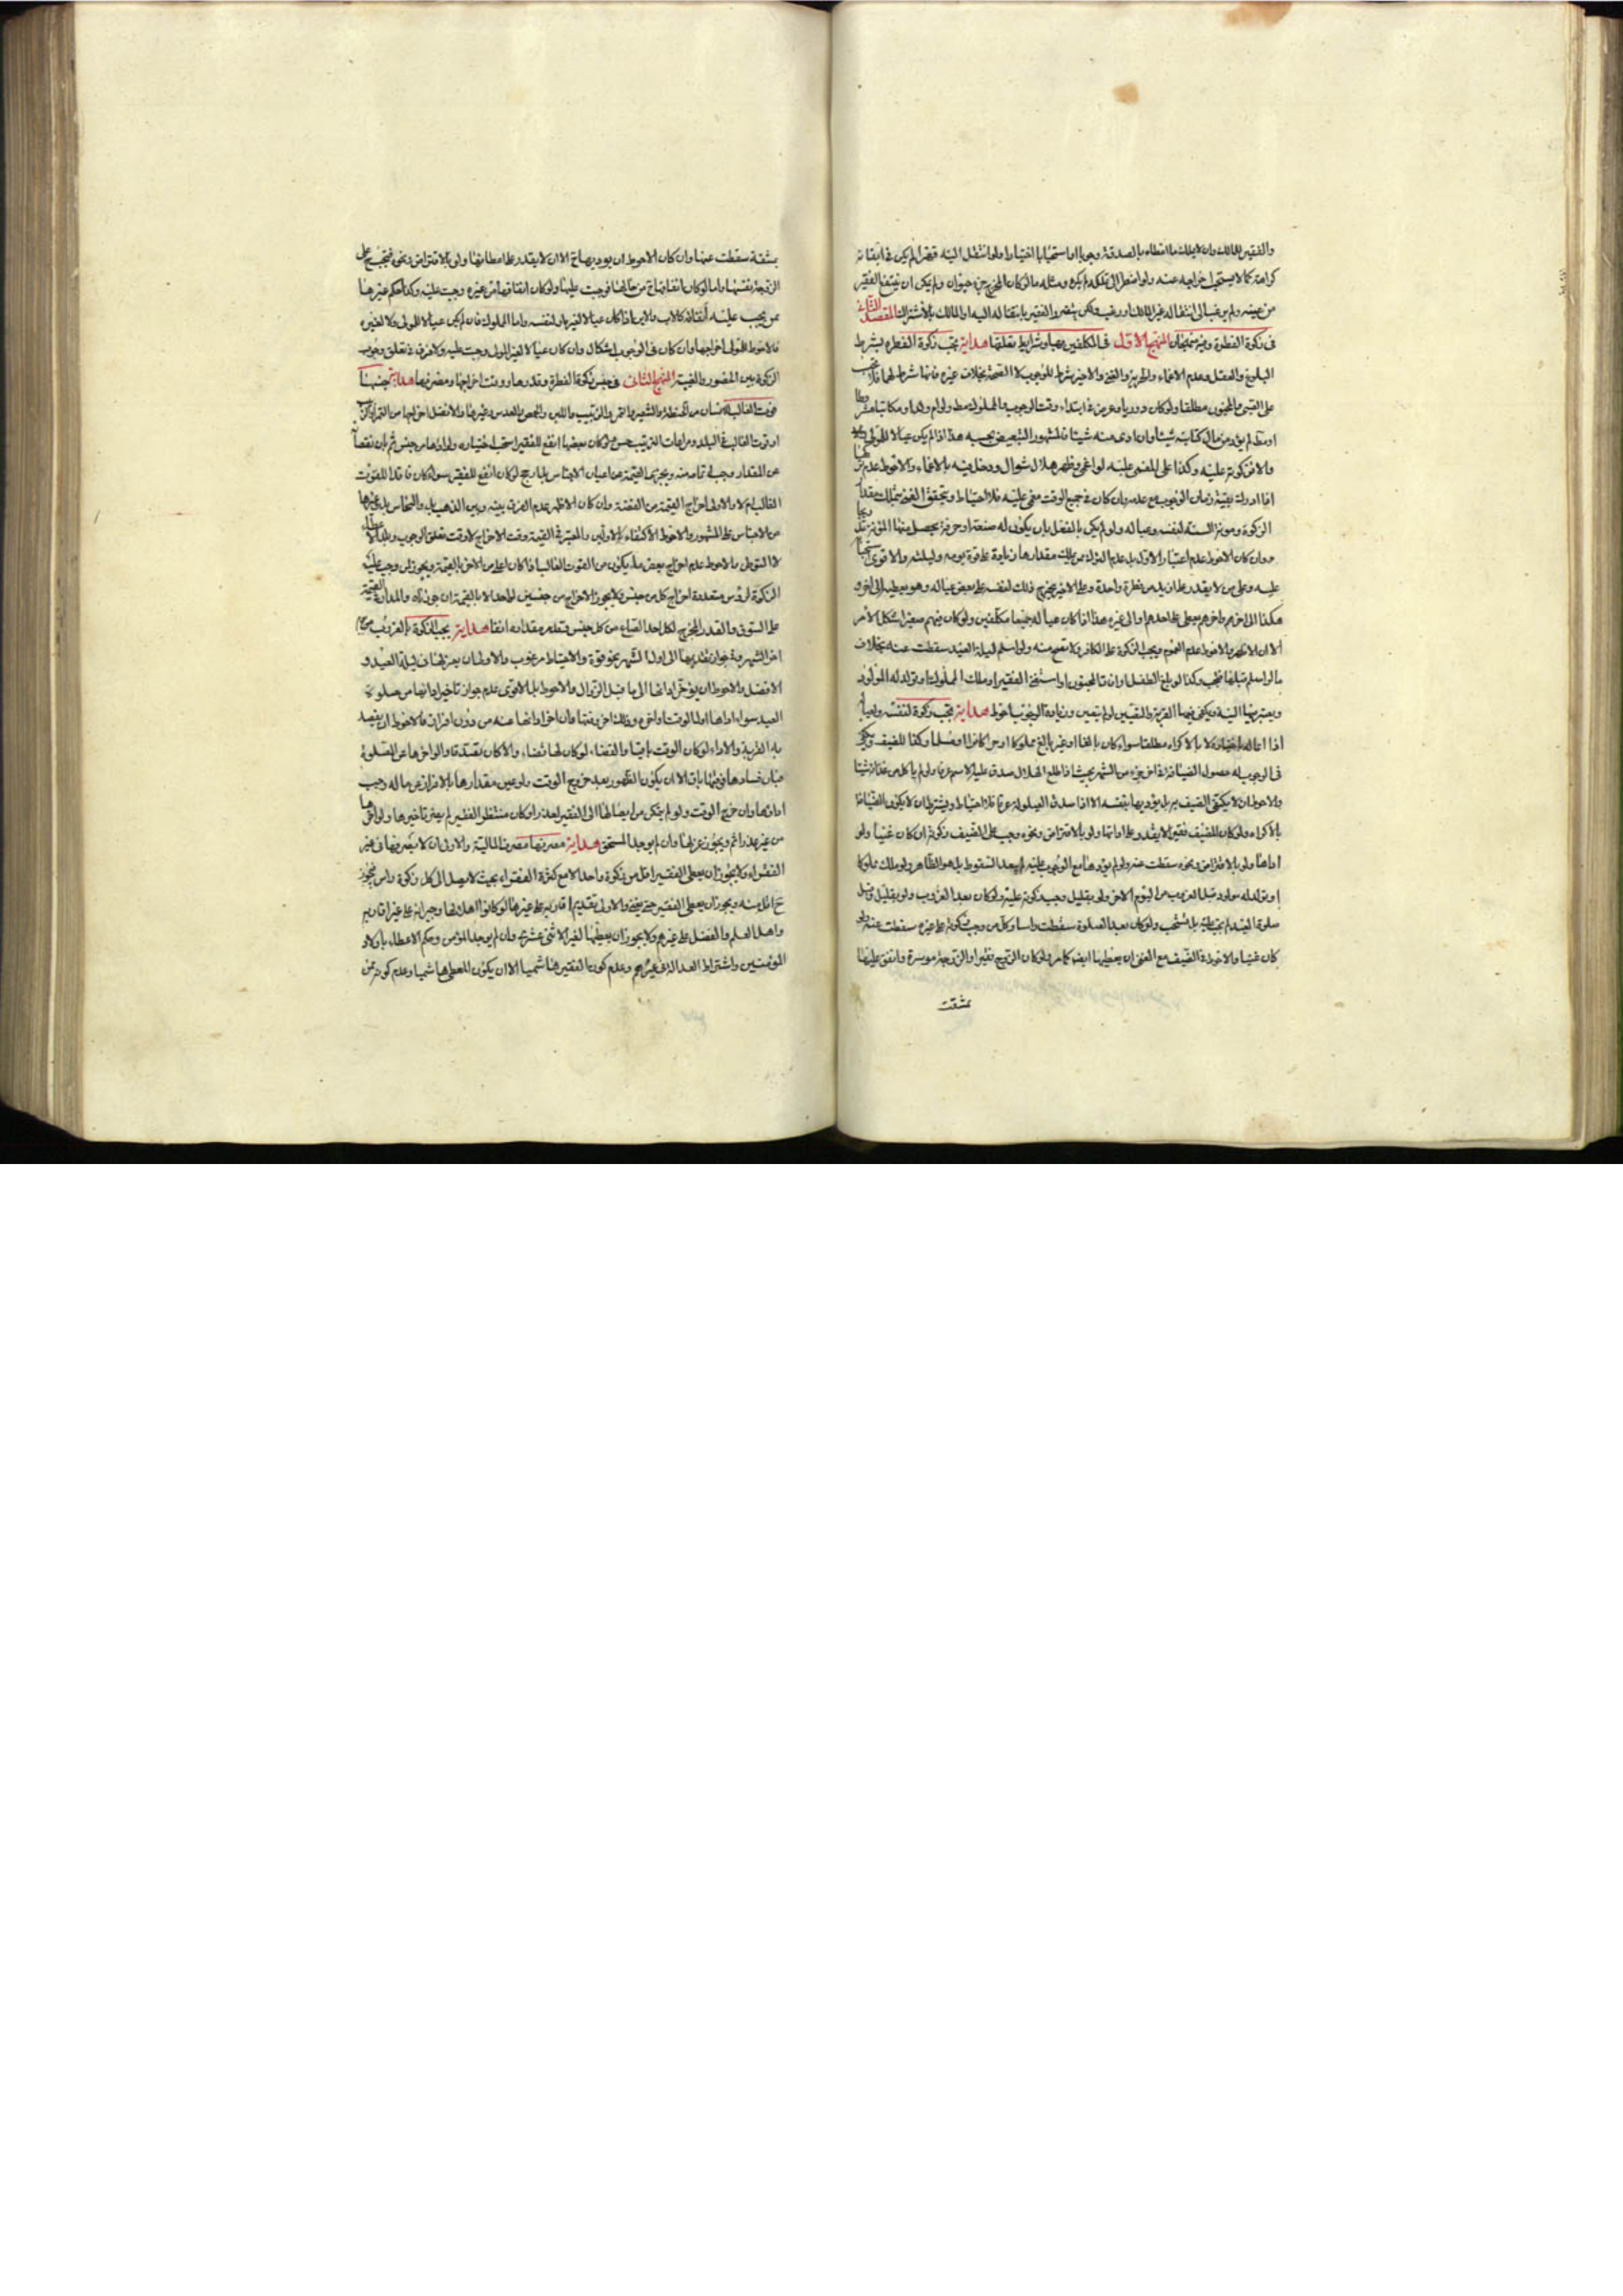 والفقير للمالك وان لا يملك ما اعطاه بالصدقة وجوبا او استحبابا اختيارا ولو انتقل اليه قهرا لم يكن في ابقائه
كراهة كما لا يستحب اخراجه عنه ولو اضطر الى تملكه لم يكره ومثله ما لو كان المخرج جزء حيوان ولم يكن ان ينتفع الفقير
من عينه ولم يرغب الى انتقاله غير المالك او رغب ولكن يتضرر الفقير بانتقاله اليه او المالك بالاشتراك المقصد الثاني
في زكوة الفطرة وفيه منهجان المنهج الاول في المكلفين بها وشرايط تعلقها هداية تجب زكوة الفطرة بشرط
البلوغ والعقل وعدم الاغماء والحرية والغنى والاخير شرط للوجوب لا الصحة بخلاف غيره فانها شرط لهما فلا تجب
على الصبي والمجنون مطلقا ولو كان دوريا وعرض في ابتداء وقت الوجوب والمملوك مطلقا ولو ام ولد او مكاتبا مشروطا
او مطلقا لم يؤد من مال كتابته شيئا وان ادى منه شيئا فالمشهور التبعيض بحسبه هذا اذا لم يكن عيالا للمولى
والا فزكوته عليه وكذا على المغمى عليه لو اغمي وظهر هلال شوال ودخل فيه بالاغماء والاحوط عدم تركها
اذا ادرك بقية زمان الوجوب مع عدمه وان كان في جميع الوقت مغمى عليه فلا احتياط ويتحقق الغنى بتملك مقدار
الزكوة ومونة السنة لنفسه وعياله ولو لم يكن بالفعل بان يكون له صنعة او حرفة يحصل منها المؤنة
وان كان الاحوط عدم اعتبار الاول بل عدم الترك من يملك مقدارها زيادة على قوة يومه وليلته والاقوى استحبابا
عليه وعلى من لا يقدر على ازيد من فطرة واحدة وعلى الاخير يخرج ذلك لنفسه على بعض عياله وهو يعطيه الى اخر و
هكذا الى اخرهم واخرهم يعطي لاحدهم او الى غيره هذا اذا كان عياله جميعا مكلفين ولو كان فيهم صغير اشكل الامر
الا ان الاظهر والاحوط عدم العموم ويجب الزكوة على الكافر ولا تصح منه ولو اسلم ليلة العيد سقطت عنه بخلاف
ما لو اسلم قبلها فتجب وكذا لو بلغ الطفل او افاق المجنون او استغنى الفقير او ملك المملوك او تولد له المولود
ويعتبر فيها النية ويكفي فيها القربة والتعيين لو لم يتعين وزيادة الوجوب احوط هداية تجب زكوة لنفسه ولعياله
اذا اعاله باختياره لا بالاكراه مطلقا سواء كان بالغا او غير بالغ مملوكا او حرا كافرا او مسلما وكذا للضيف ويكفي
في الوجوب له حصول الضيافة في اخر جزء من الشهر بحيث اذا طلع الهلال صدق عليه الاسم عرفا ولو لم ياكل من غذائه شيئا
والاحوط ان لا يكتفي الضيف به بل يؤديها بنفسه الا اذا صدق العيلولة عرفا فلا احتياط ويشترط ان لا يكون الضيافة
بالاكراه ولو كان للضيف فقيرا لا يقدر على ادائها ولو بالاقتراض ونحوه وجب على الضيف زكوته لو كان غنيا ولو
اداها ولو بالاقتراض ونحوه سقطت عنه ولو لم يؤدها مع الوجوب عليه لم يبعد السقوط بل هو الظاهر ولو ملك مملوكا
او تولد له مولود قبل الغروب من اليوم الاخر ولو بقليل وجب زكوته عليه ولو كان بعد الغروب ولو بقليل وقبل
صلوة العيد لم يجب عليه بل يستحب ولو كان بعد الصلوة سقطت راسا وكل من وجب زكوته على غيره سقطت عنه ولو
كان غنيا والاحوط في الضيف مع الغنى ان يعطيها ايضا كما مر ولو كان الزوج فقيرا والزوجة موسرة وانفق عليها
بمشقة
بمشقة سقطت عنها وان كان الاحوط ان يوديها ح الا ان لا يقدر على اعطائها ولو بالاقتراض ونحوه فتجب ح على
الزوجة نفسها واما لو كان انفاقها ح من مالها فوجبت عليها ولو كان انفاقها من غيره وجبت عليه وكذا حكم غيرها
ممن يجب عليه انفاقه كالاب والابن اذا كان عيالا لغيره او لنفسه واما المملوك فان لم يكن عيالا للمولى ولا لغيره
فالاحوط للمولى اخراجها وان كان في الوجوب اشكال وان كان عيالا لغير المولى وجبت عليه ولا فرق في تعلق وجوب
الزكوة بين الحضور والغيبة المنهج الثاني في جنس زكوة الفطرة وقدرها ووقت اخراجها ومصرفها هداية جنسها
قوت الغالب للانسان من الحنطة والشعير والتمر والزبيب واللبن والحمص والعدس وغيرها والافضل اخراجها من التمر
او قوت الغالب في البلد ومراعات الترتيب حسن ولو كان بعضها انفع للفقير استحب اختياره ولو اداها من جنس ثم بان نقصها
عن المقدار وجب اتمامه منه ويجزي القيمة من اعيان الاجناس بل ارجح لو كان انفع للفقير سواء كان فاقدا للقوت
الغالب ام لا والاولى اخراج القيمة من الفضة وان كان الاظهر عدم الفرق بينه وبين الذهب بل والنحاس بل وغيرها
من الاجناس على المشهور والاحوط الاكتفاء بالاولين والمعتبر في القيمة وقت الاخراج لا وقت تعلق الوجوب وبلد الاخراج
لا التوطن والاحوط عدم اخراج بعض ما يكون من القوت الغالب اذا كان اعلى من الاخر بالقيمة ويجوز لمن وجب عليه
الزكوة لرؤس متعددة اخراج كل من جنس ولا يجوز الاخراج من جنسين لواحد الا بالقيمة ان جوزناه والمدار في القيمة
على السوقي والقدر المخرج لكل احد الصاع من كل جنس وقد مر مقداره انفا هداية يجب الزكوة بالغروب من
اخر الشهر وفي جواز تقديمها الى اول الشهر نحو قوة والاحتياط مرغوب والاولى ان يعزلها في ليلة العيد و
الافضل والاحوط ان يؤخر ادائها الى ما قبل الزوال والاحوط بل الاقوى عدم جواز تاخير ادائها من صلوة
العيد سواء اداها اول الوقت او اخره وفي اخره وقتها فان اخر ادائها عنه من دون افراز فالاحوط ان يقصد
به القربة والاداء لو كان الوقت باقيا والقضاء لو كان لها قضاء والا كان تصدقا ولو اخرها عن الصلوة
فبان فسادها فوقتها باق الا ان يكون الظهور بعد خروج الوقت ولو عين مقدارها بالافراز عن ماله وجب
اداؤها وان خرج الوقت ولو لم يتمكن من ايصالها الى الفقير لعذر او كان منتظر الفقير لم يضر تاخيرها ولو اخرها
من غير عذر اثم ويجوز عزلها وان لم يوجد المستحق هداية مصرفها مصرف المالية والاولى ان لا يصرفها في غير
الفقراء ولا يجوز ان يعطي الفقير اقل من زكوة واحد الا مع كثرة الفقراء بحيث لا يصل الى كل زكوة راس فيجوز
ح اقل منه ويجوز ان يعطي الفقير حتى يغني والاولى تقديم اقاربه على غيرها لو كانوا اهلا لها وجيرانه على غير اقاربه
واهل العلم والفضل على غيرهم ولا يجوز ان يعطيها لغير الاثني عشري وان لم يوجد المؤمن وحكم الاعطاء باولاد
المؤمنين واشتراط العدالة في غيرهم وعدم كون الفقير هاشميا الا ان يكون المعطي هاشميا وعدم كونه ممن